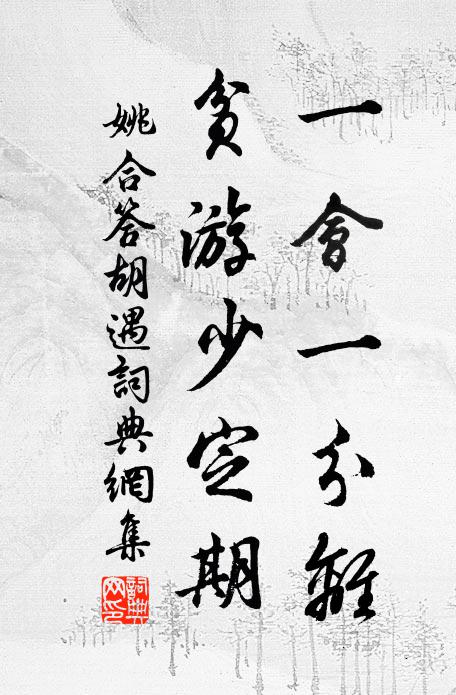 一會一分離
貧游少定期
姚合答胡遇詞典網集
詞典網印